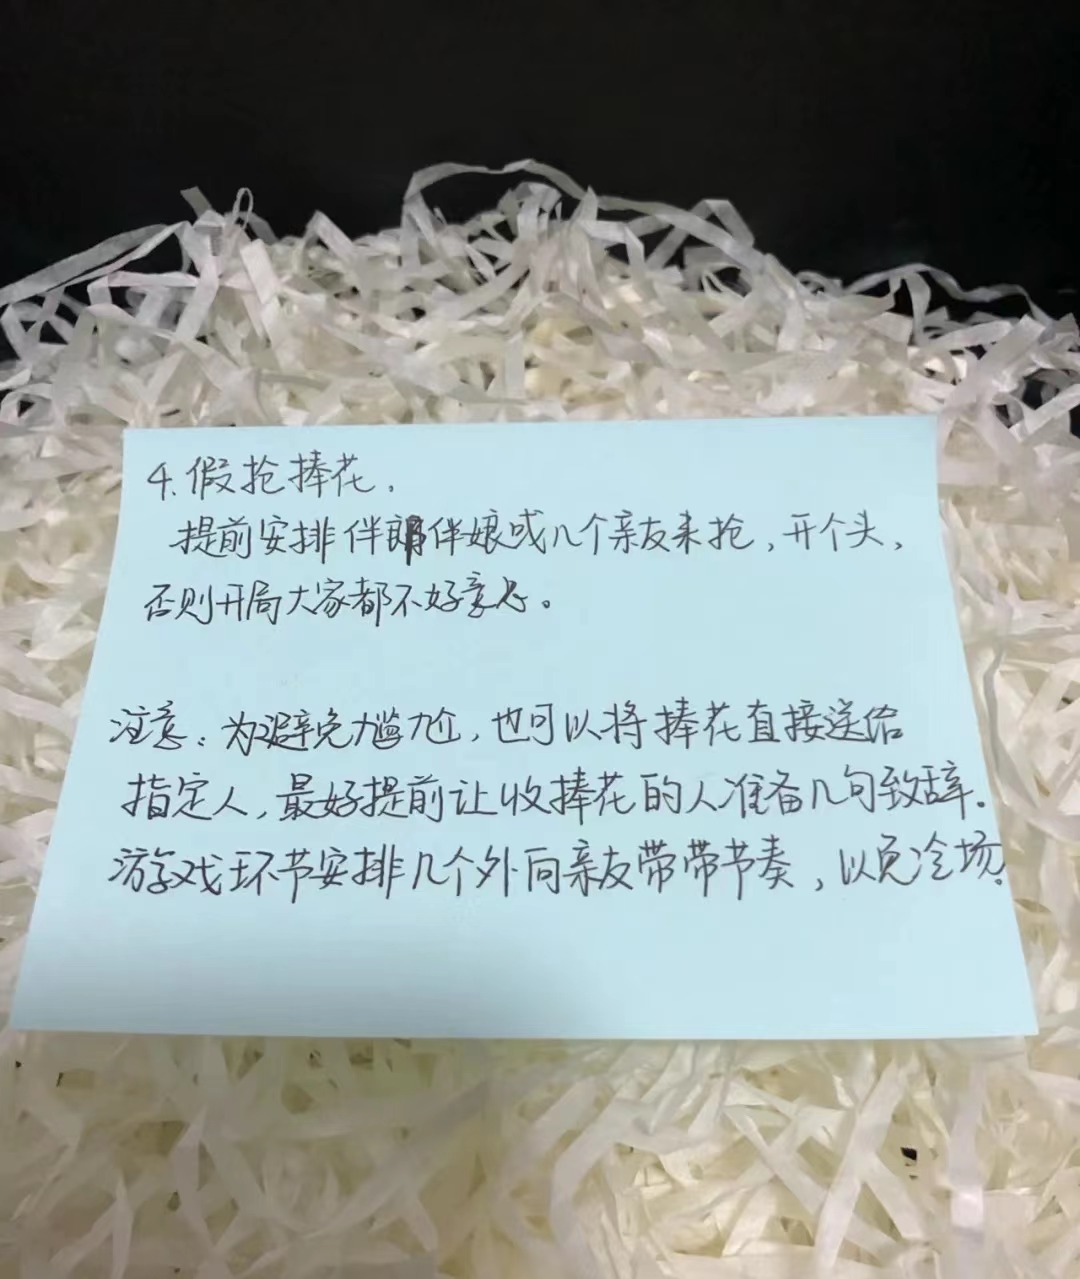 4.假抢捧花.
提前安排伴郎伴娘或几个亲友来抢,开个头,
否则开局大家都不好意思。
注意:为避免尴尬,也可以将捧花直接送给
指定人,最好提前让收捧花的人准备几句致辞.
游戏环节安排几个外向亲友带带节奏,以免冷场.